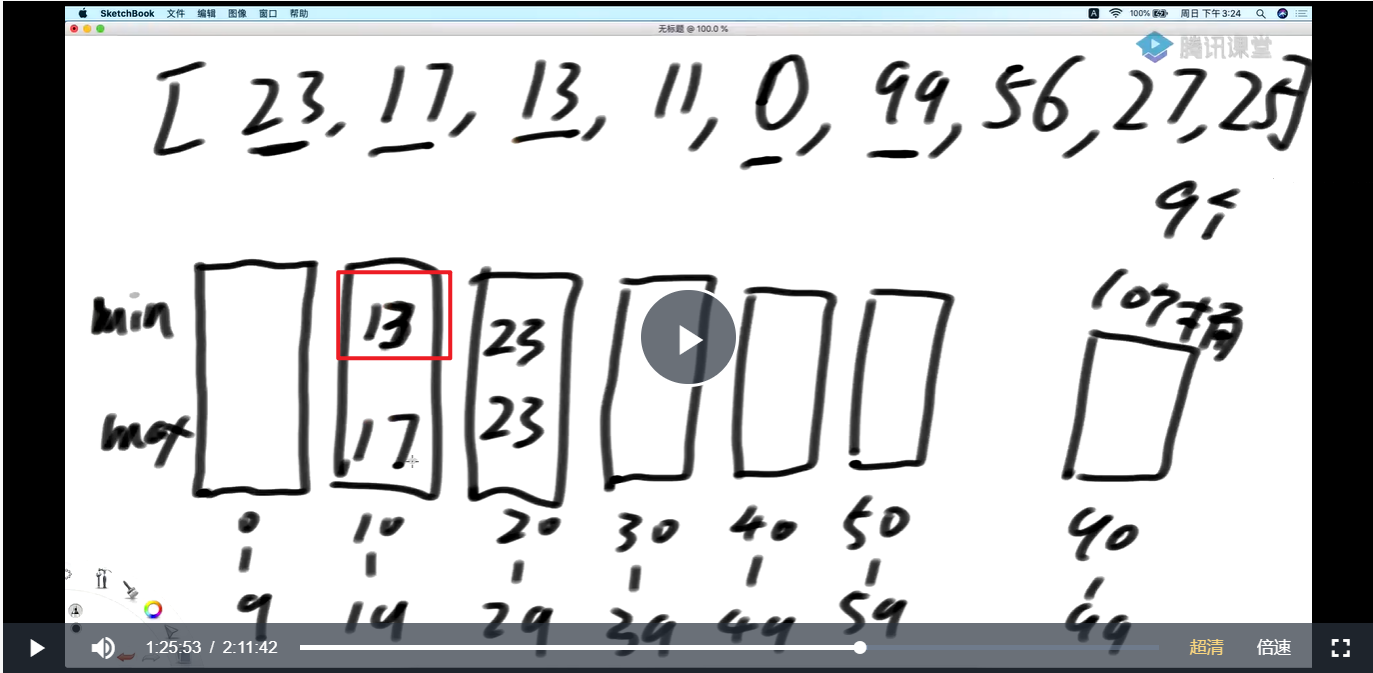 SketchBook 文件 编辑 图像 窗口 帮助
A 100% 周日 下午3:24
无标题 @ 100.0 %
腾讯课堂
[ 23, 17, 13, 11, 0, 99, 56, 27, 25]
9个
10个桶
min 13 23
max 17 23
0 10 20 30 40 50 90
| | | | | | |
9 19 29 39 49 59 99
1:25:53 / 2:11:42 超清 倍速